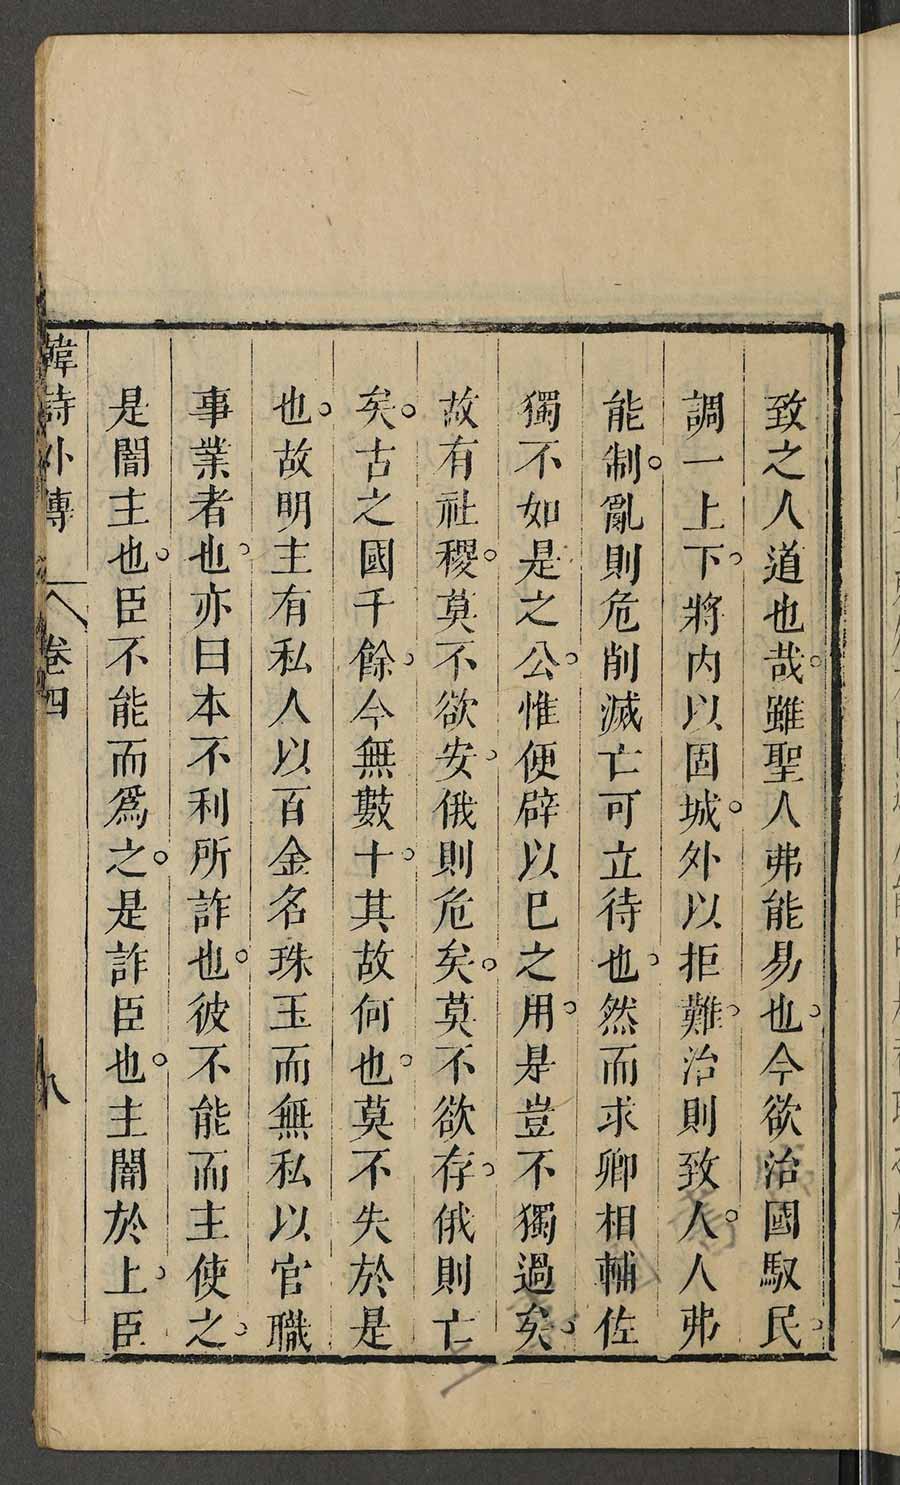 致之人道也哉。雖聖人弗能易也。今欲治國馭民。
調一上下。將内以固城。外以拒難。治則致人。人弗
能制。亂則危削滅亡可立待也。然而求卿相輔佐
獨不如是之公。惟便辟以巳之用。是豈不獨過矣。
故有社稷。莫不欲安。俄則危矣。莫不欲存。俄則亡
矣。古之國千餘。今無數十。其故何也。莫不失於是
也。故明主有私人以百金名珠玉而無私以官職
事業者也。亦曰本不利所詐也。彼不能而主使之。
是闇主也。臣不能而爲之。是詐臣也。主闇於上。臣
韓詩外傳 卷四 八